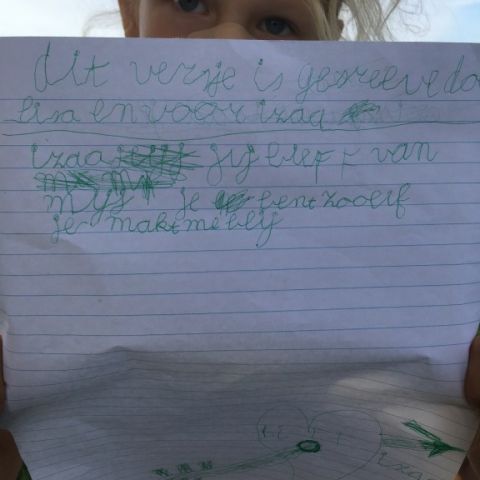 dit versje is gesreeve do
lisa en voor izaa
izaa jij blef van
myf je bent zoo lif
je makt me blij